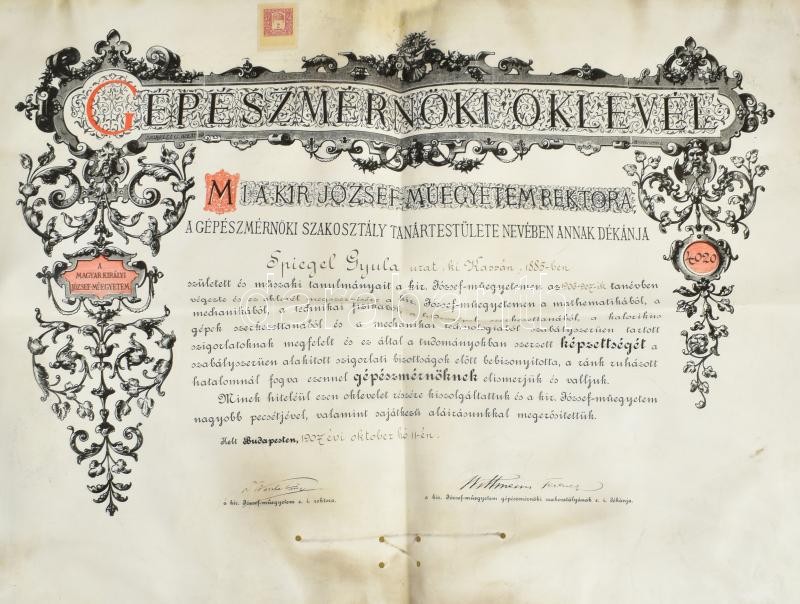 GÉPÉSZMÉRNÖKI OKLEVÉL
MI A KIR. JÓZSEF-MŰEGYETEM REKTORA,
A GÉPÉSZMÉRNÖKI SZAKOSZTÁLY TANÁRTESTÜLETE NEVÉBEN ANNAK DÉKÁNJA
Spiegel Gyula urat, ki Kassán, 1885-ben
született és műszaki tanulmányait a kir. József-műegyetemen az 906-907-ik tanévben
végezte és az oklevél a József-műegyetemen a mathematikából, a
mechanikából, a technikai a kalorikus
gépek szerkesztéstanából és a mechanikai technologiából szabályszerűen tartott
szigorlatoknak megfelelt és ez által a tudományokban szerzett képzettségét a
szabályszerűen alakított szigorlati bizottságok előtt bebizonyította, a ránk ruházott
hatalomnál fogva ezennel gépészmérnöknek elismerjük és valljuk.
Minek hiteléül ezen oklevelet részére kiszolgáltattuk és a kir. József-műegyetem
nagyobb pecsétjével, valamint sajátkezű aláírásunkkal megerősítettük.
Kelt Budapesten, 1907 évi október hó 11-én.
Wittmann Ferencz
a kir. József-műegyetem e. i. rektora.
a kir. József-műegyetem gépészmérnöki szakosztályának e. i. dékánja.
A
MAGYAR KIRÁLYI
JÓZSEF-MŰEGYETEM
4020
darabanth